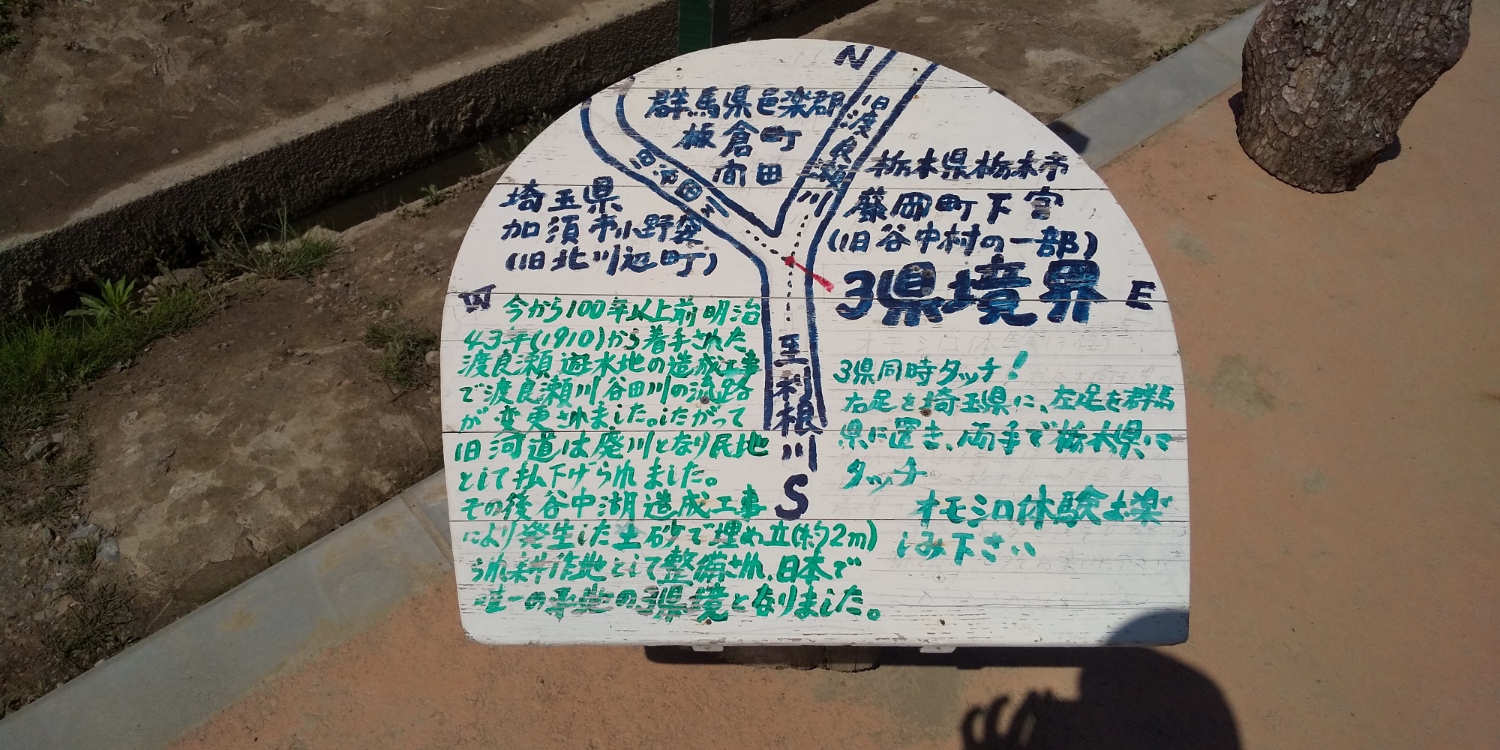 N
群馬県邑楽郡
板倉町
間田
旧渡良瀬川
旧谷田川
埼玉県
加須市小野袋
(旧北川辺町)
栃木県栃木市
藤岡町下宮
(旧谷中村の一部)
3県境界
E
至利根川
S
今から100年以上前明治
43年(1910)から着手された
渡良瀬遊水地の造成工事
で渡良瀬川谷田川の流路
が変更されました。したがって
旧河道は廃川となり民地
として払下げられました。
その後谷中湖造成工事
により発生した土砂で埋め立(約2m)
られ耕作地として整備され、日本で
唯一の平地の3県境となりました。
3県同時タッチ!
右足を埼玉県に、左足を群馬
県に置き、両手で栃木県に
タッチ
オモシロ体験お楽
しみ下さい